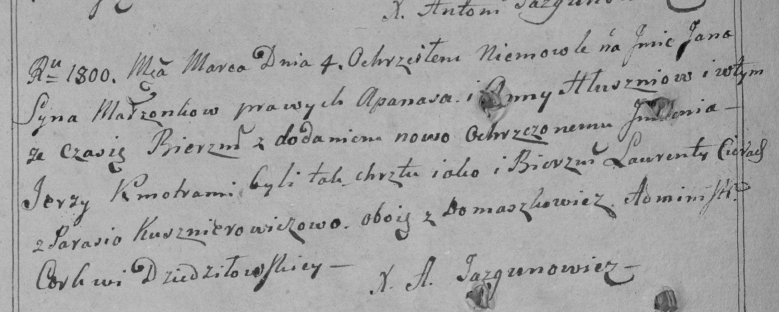 X. Antoni Jazgunow
Ru 1800. Mca Marca Dnia 4. Ochrzciłem Niemowle na Jmie Jana
Syna Małzonkow prawych Apanasa i Anny Hłuszniow i w tym
ze czasie Bierzm z dodaniem nowo Ochrzczonemu Jmienia
Jerzy Kmotrami byli tak chrztu iako i Bierzm Laurenty
z Parasio Kusznierowiczowo. oboie z Domaszkowicz. Administ.
Cerkwi Dziedziłowskiey — X. A. Jazgunowicz —